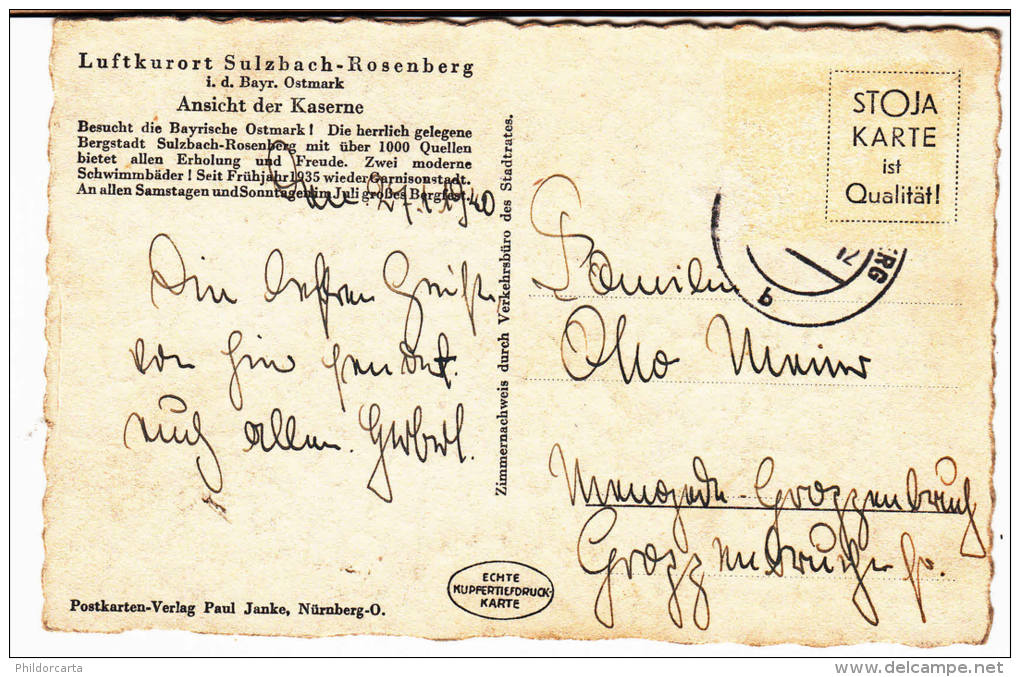 Luftkurort Sulzbach-Rosenberg
i. d. Bayr. Ostmark
Ansicht der Kaserne
Besucht die Bayrische Ostmark! Die herrlich gelegene
Bergstadt Sulzbach-Rosenberg mit über 1000 Quellen
bietet allen Erholung und Freude. Zwei moderne
Schwimmbäder! Seit Frühjahr 1935 wieder Garnisonstadt.
An allen Samstagen und Sonntagen im Juli großes Bergfest.
27.1.1940
Die besten Grüße
von hier sendet
euch allen
Postkarten-Verlag Paul Janke, Nürnberg-O.
Zimmernachweis durch Verkehrsbüro des Stadtrates.
ECHTE
KUPFERTIEFDRUCK-
KARTE
STOJA
KARTE
ist
Qualität!
RG
b
Familie
Otto Meier
Mengede-Groppenbruch
Groppenbrucher
Phildorcarta
www.delcampe.net